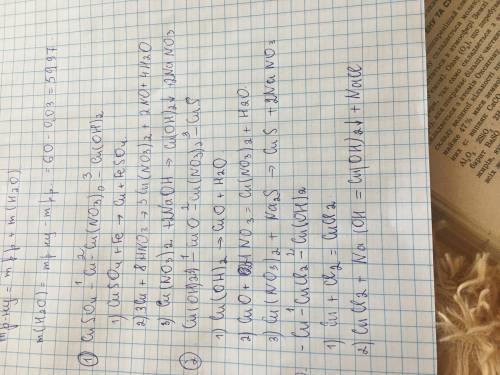 mр-ну = mр.р + m(H2O)
m(H2O) = mр-ну - mр.р. = 60 - 0,03 = 59,97.
① CuSO4 -1 Cu -2 Cu(NO3)2 -3 Cu(OH)2
1) CuSO4 + Fe → Cu + FeSO4
2) 3Cu + 8HNO3 → 3Cu(NO3)2 + 2NO + 4H2O
3) Cu(NO3)2 + 2NaOH → Cu(OH)2↓ + 2NaNO3
② Cu(OH)2 -1 CuO -2 Cu(NO3)2 -3 CuS
1) Cu(OH)2 → CuO + H2O.
2) CuO + 2HNO3 = Cu(NO3)2 + H2O.
3) Cu(NO3)2 + Na2S → CuS + 2NaNO3
- Cu -1 CuCl2 -2 Cu(OH)2
1) Cu + Cl2 = CuCl2
2) CuCl2 + NaOH = Cu(OH)2↓ + NaCl